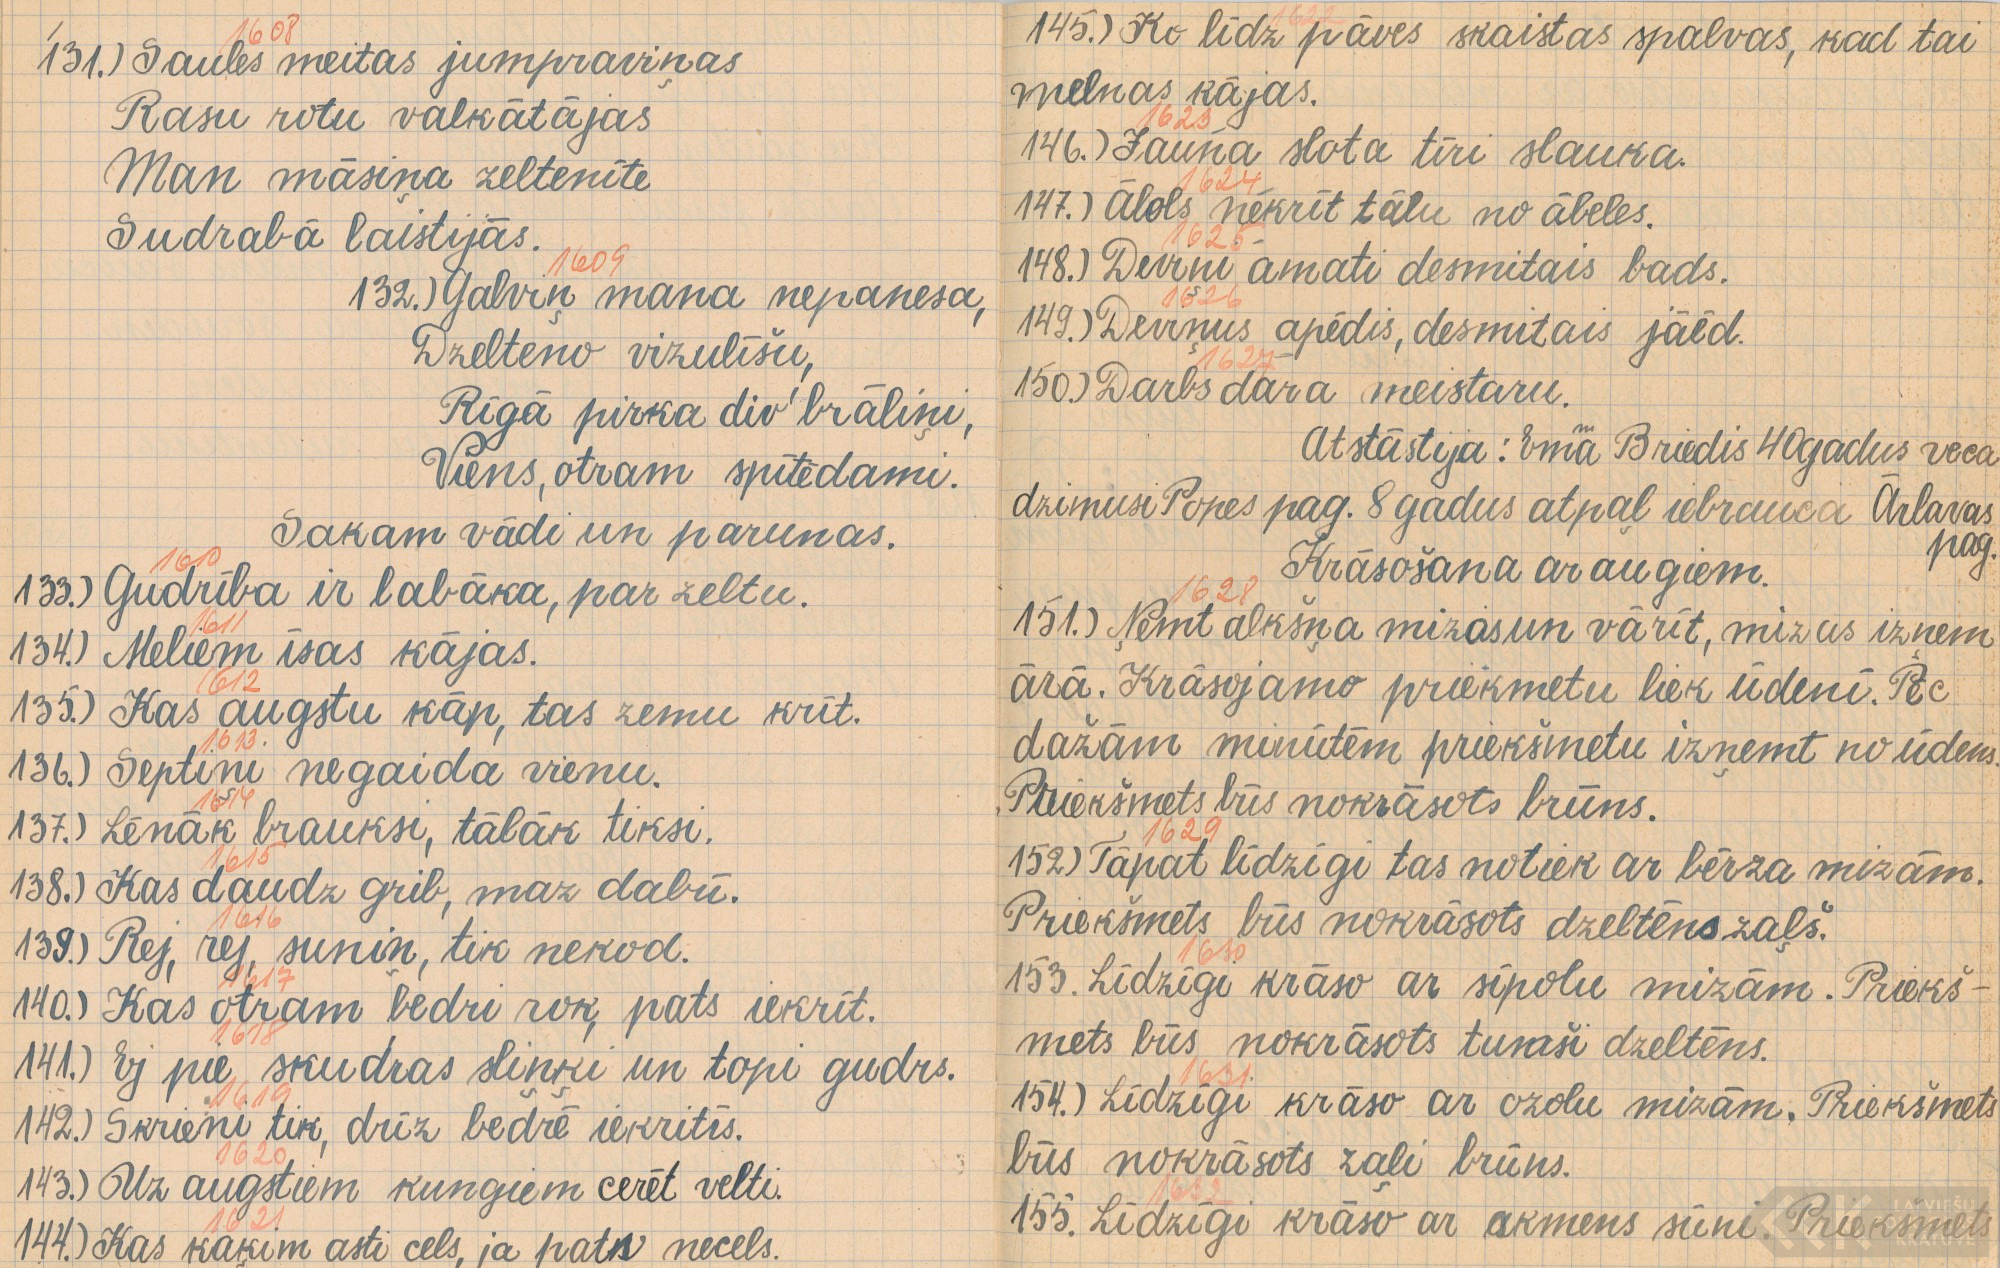 1608
131.) Saules meitas jumpraviņas
Rasu rotu valkātājas
Man māsiņa zeltenīte
Sudrabā laistijās.
1609
132.) Galviņ mana nepanesa,
Dzelteno vizulīšu,
Rīgā pirka div' brāliņi,
Viens, otram spītēdami.
Sakam vādi un parunas.
1610
133.) Gudrība ir labāka, par zeltu.
1611
134.) Meliem īsas kājas.
1612
135.) Kas augstu kāp, tas zemu krīt.
1613.
136.) Septiņi negaida vienu.
1614
137.) Lēnāk brauksi, tālāk tiksi.
1615
138.) Kas daudz grib, maz dabū.
1616
139.) Rej, rej, suniņ, tik nekod.
1617
140.) Kas otram bedri rok, pats iekrīt.
1618
141.) Ej pie skudras sliņķi un topi gudrs.
1619
142.) Skrieni tik, drīz bedrē iekritīs.
1620
143.) Uz augstiem kungiem cerēt velti.
1621
144.) Kas kaķim asti cels, ja pats necels.
1622
145.) Ko līdz pāves skaistas spalvas, kad tai
melnas kājas.
1623
146.) Jauna slota tīri slauka.
1624
147.) Ālols nekrīt tālu no ābeles.
1625
148.) Deviņi amati desmitais bads.
1626
149.) Deviņus apēdis, desmitais jāēd.
1627
150.) Darbs dara meistaru.
Atstāstija: Emma Briedis 40 gadus veca
dzimusi Popes pag. 8 gadus atpaļ iebrauca Ārlavas
pag.
Krāsošana ar augiem.
1628
151.) Ņemt alkšņa mizas un vārīt, mizas izņem
ārā. Krāsojamo priekmetu liek ūdenī. Pēc
dažām minūtēm priekšmetu izņemt no ūdens.
Priekšmets būs nokrāsots brūns.
1629
152.) Tāpat līdzīgi tas notiek ar bērza mizām.
Priekšmets būs nokrāsots dzeltēns zaļš.
1630
153. Līdzīgi krāso ar sīpolu mizām. Priekš-
mets būs nokrāsots tumši dzeltēns.
1631
154.) Līdzīgi krāso ar ozolu mizām. Priekšmets
būs nokrāsots zaļi brūns.
1632
155. Līdzīgi krāso ar akmens sūni. Priekšmets